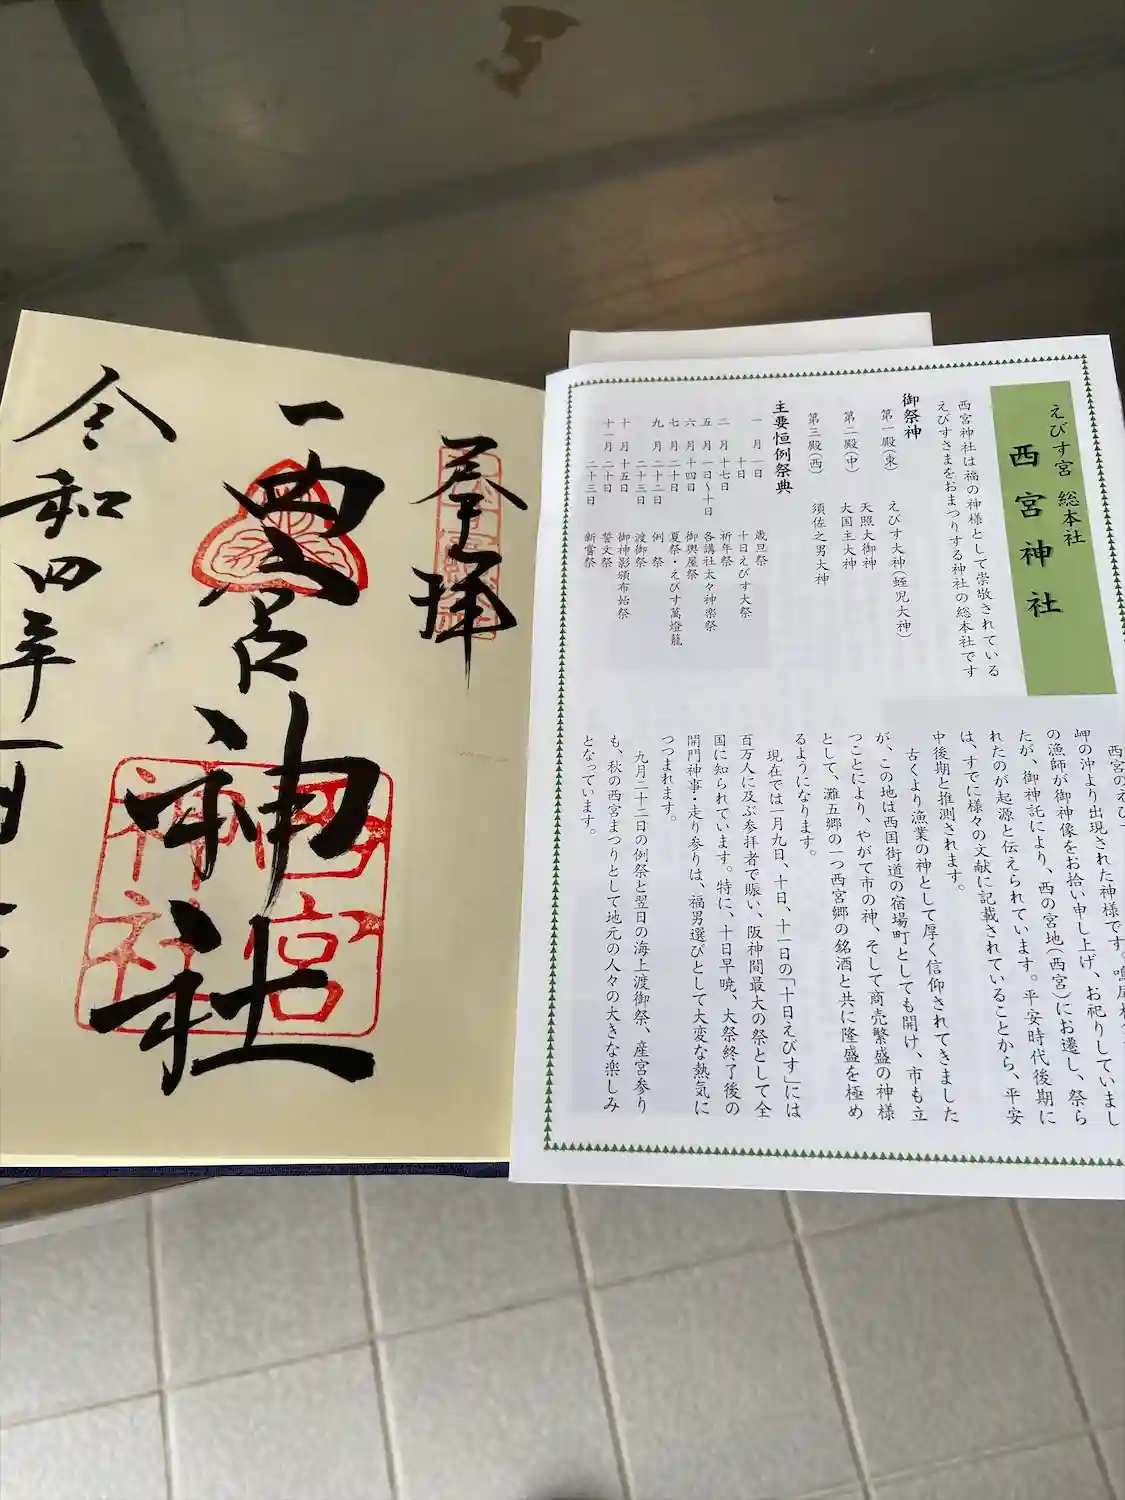 奉拝
西宮神社
西宮神社
令和四年一月
えびす宮 総本社
西宮神社
西宮神社は福の神様として崇敬されている
えびすさまをおまつりする神社の総本社です
御祭神
第一殿(東) えびす大神(蛭児大神)
天照大御神
第二殿(中) 大国主大神
第三殿(西) 須佐之男大神
主要恒例祭典
一月一日 歳旦祭
十日 十日えびす大祭
二月十七日 祈年祭
五月一日〜十日 各講社太々神楽祭
六月十四日 御輿屋祭
七月二十日 夏祭・えびす萬燈籠
九月二十二日 例祭
二十三日 渡御祭
十月十五日 御神影頒布始祭
十一月二十日 誓文祭
二十三日 新嘗祭
岬の沖より出現された神様です。
の漁師が御神像をお拾い申し上げ、お祀りしていまし
たが、御神託により、西の宮地(西宮)にお遷し、祭ら
れたのが起源と伝えられています。平安時代後期に
は、すでに様々の文献に記載されていることから、平安
中後期と推測されます。
古くより漁業の神として厚く信仰されてきました
が、この地は西国街道の宿場町としても開け、市も立
つことにより、やがて市の神、そして商売繁盛の神様
として、灘五郷の一つ西宮郷の銘酒と共に隆盛を極め
るようになります。
現在では一月九日、十日、十一日の「十日えびす」には
百万人に及ぶ参拝者で賑い、阪神間最大の祭として全
国に知られています。特に、十日早暁、大祭終了後の
開門神事・走り参りは、福男選びとして大変な熱気に
つつまれます。
九月二十二日の例祭と翌日の海上渡御祭、産宮参り
も、秋の西宮まつりとして地元の人々の大きな楽しみ
となっています。